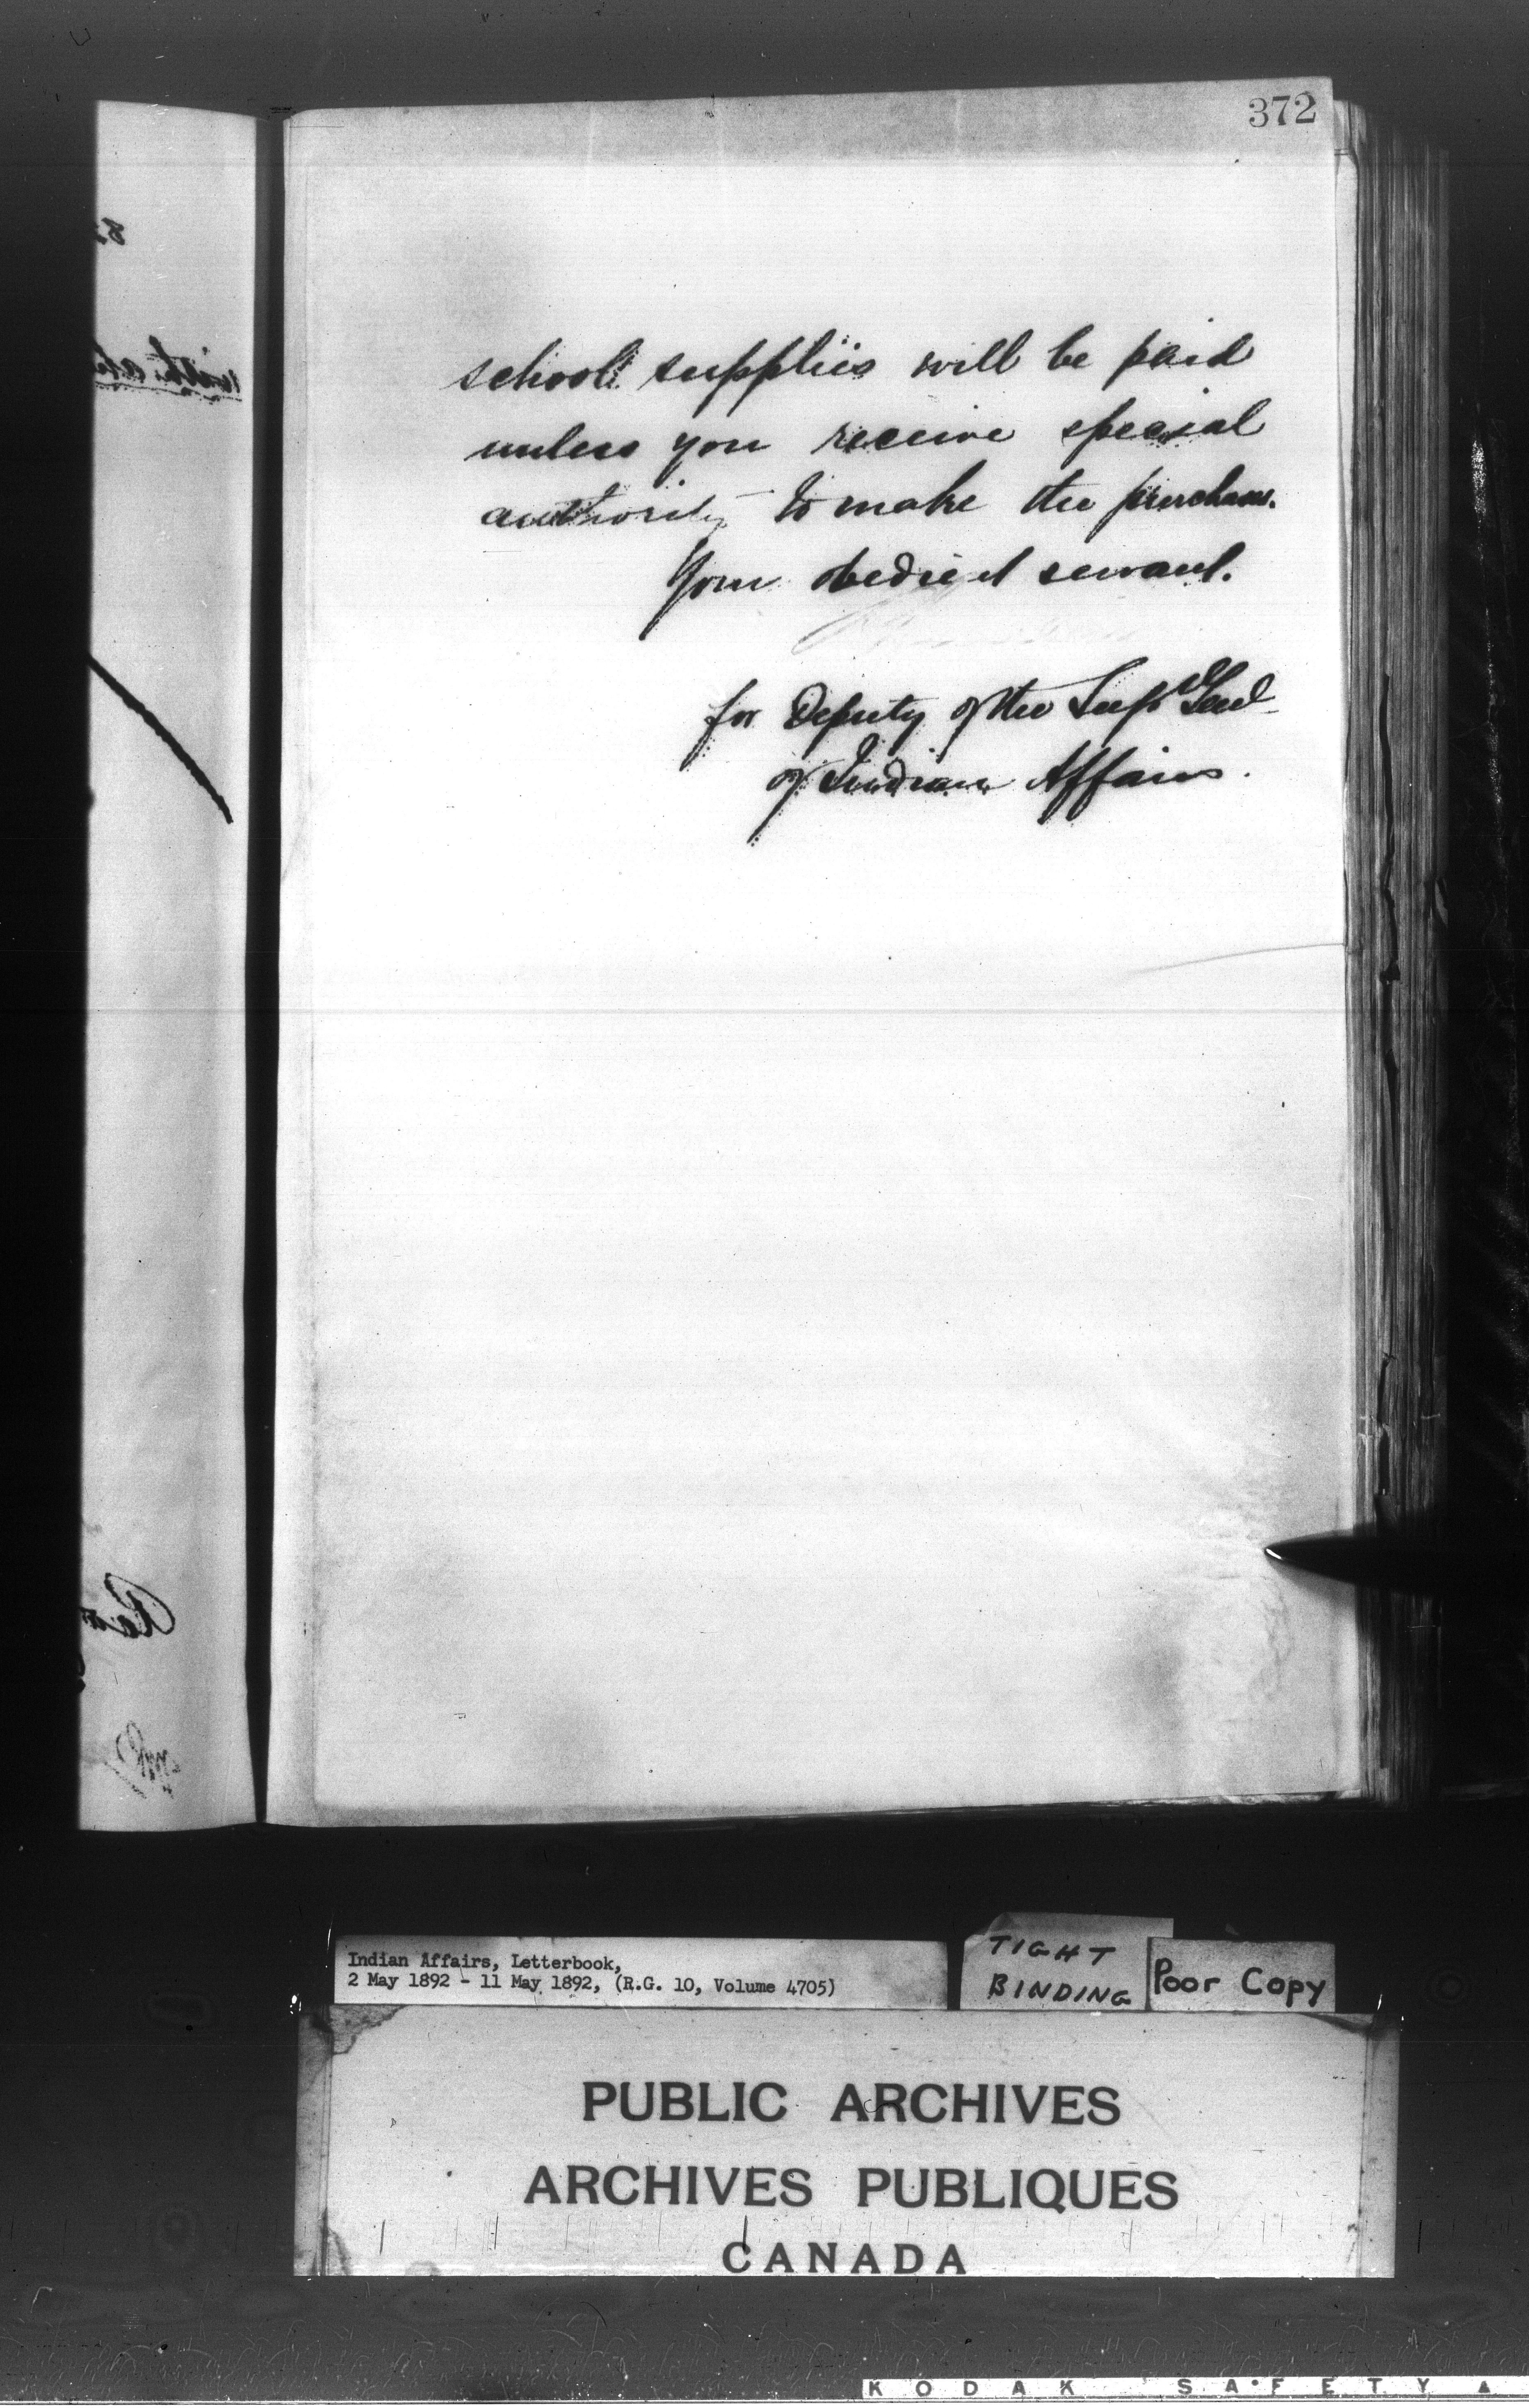 372
school supplies will be paid
unless you receive special
authority to make the purchase.
Your obedient servant.
for Deputy of the Supt Genl
of Indian Affairs.
Indian Affairs, Letterbook,
2 May 1892 - 11 May 1892, (R.G. 10, Volume 4705)
TIGHT
BINDING
Poor Copy
PUBLIC ARCHIVES
ARCHIVES PUBLIQUES
CANADA
KODAK SAFETY